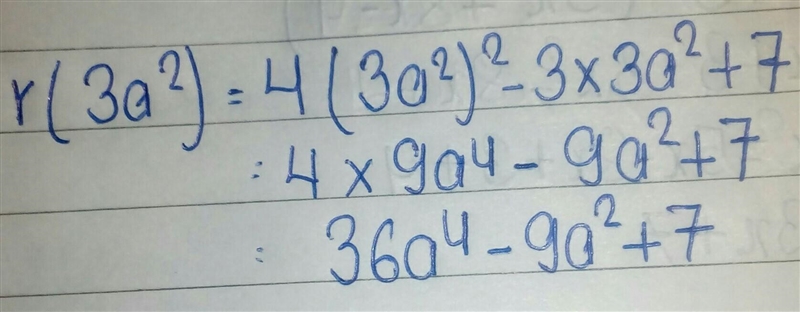 r(3a²) = 4(3a²)² - 3 × 3a² + 7
: 4 × 9a⁴ - 9a² + 7
: 36a⁴ - 9a² + 7